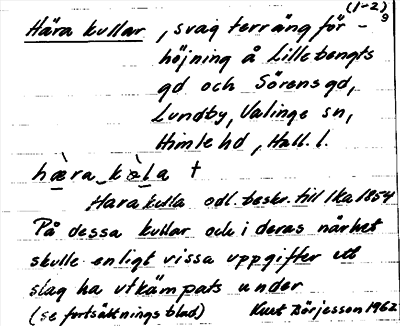 (1-2)
9
Hära kullar, svag terräng för-
höjning å Lillebengts
gd och Sörens gd,
Lundby, Valinge sn,
Himle hd, Hall. l.
hæ̀ra_kə̀la †
Hara kulla odl. beskr. till lka 1854
På dessa kullar och i deras närhet
skulle enligt vissa uppgifter ett
slag ha utkämpats under
(se fortsättningsblad) Kurt Börjesson 1962